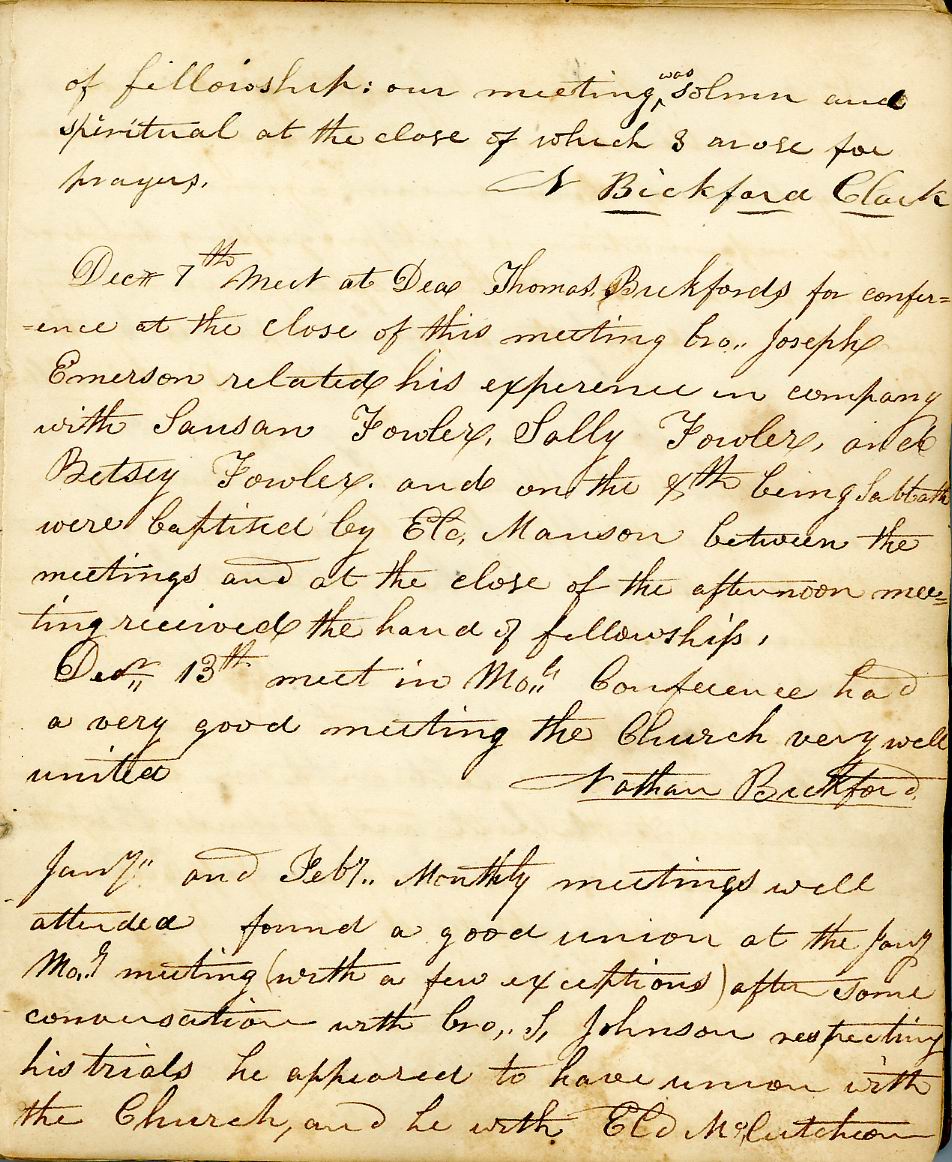 of fillowship: our meeting was solmn and
spiritual at the close of which 3 arose for
prayers. N Bickford Clark
Decr 7th Meet at Dea Thomas Bickfords for confer=
=ence at the close of this meeting bro,, Joseph
Emerson related his experence in company
with Sausan Fowler, Sally Fowler, and
Betsey Fowler. and on the 8th being Sabbath
were baptised by Eld, Manson between the
meetings and at the close of the afternoon mee=
ting received the hand of fellowship,
Decr,, 13th meet in Mo,,ly Conference had
a very good meeting the Church very well
united Nathan Bickford
Jany,, and Feby,, Monthly meetings well
attended found a good union at the Jany
Mo,ly meeting (with a few exceptions) after some
conversation with bro,, S, Johnson respecting
his trials he appeared to have union with
the Church, and he with Eld McCutcheon